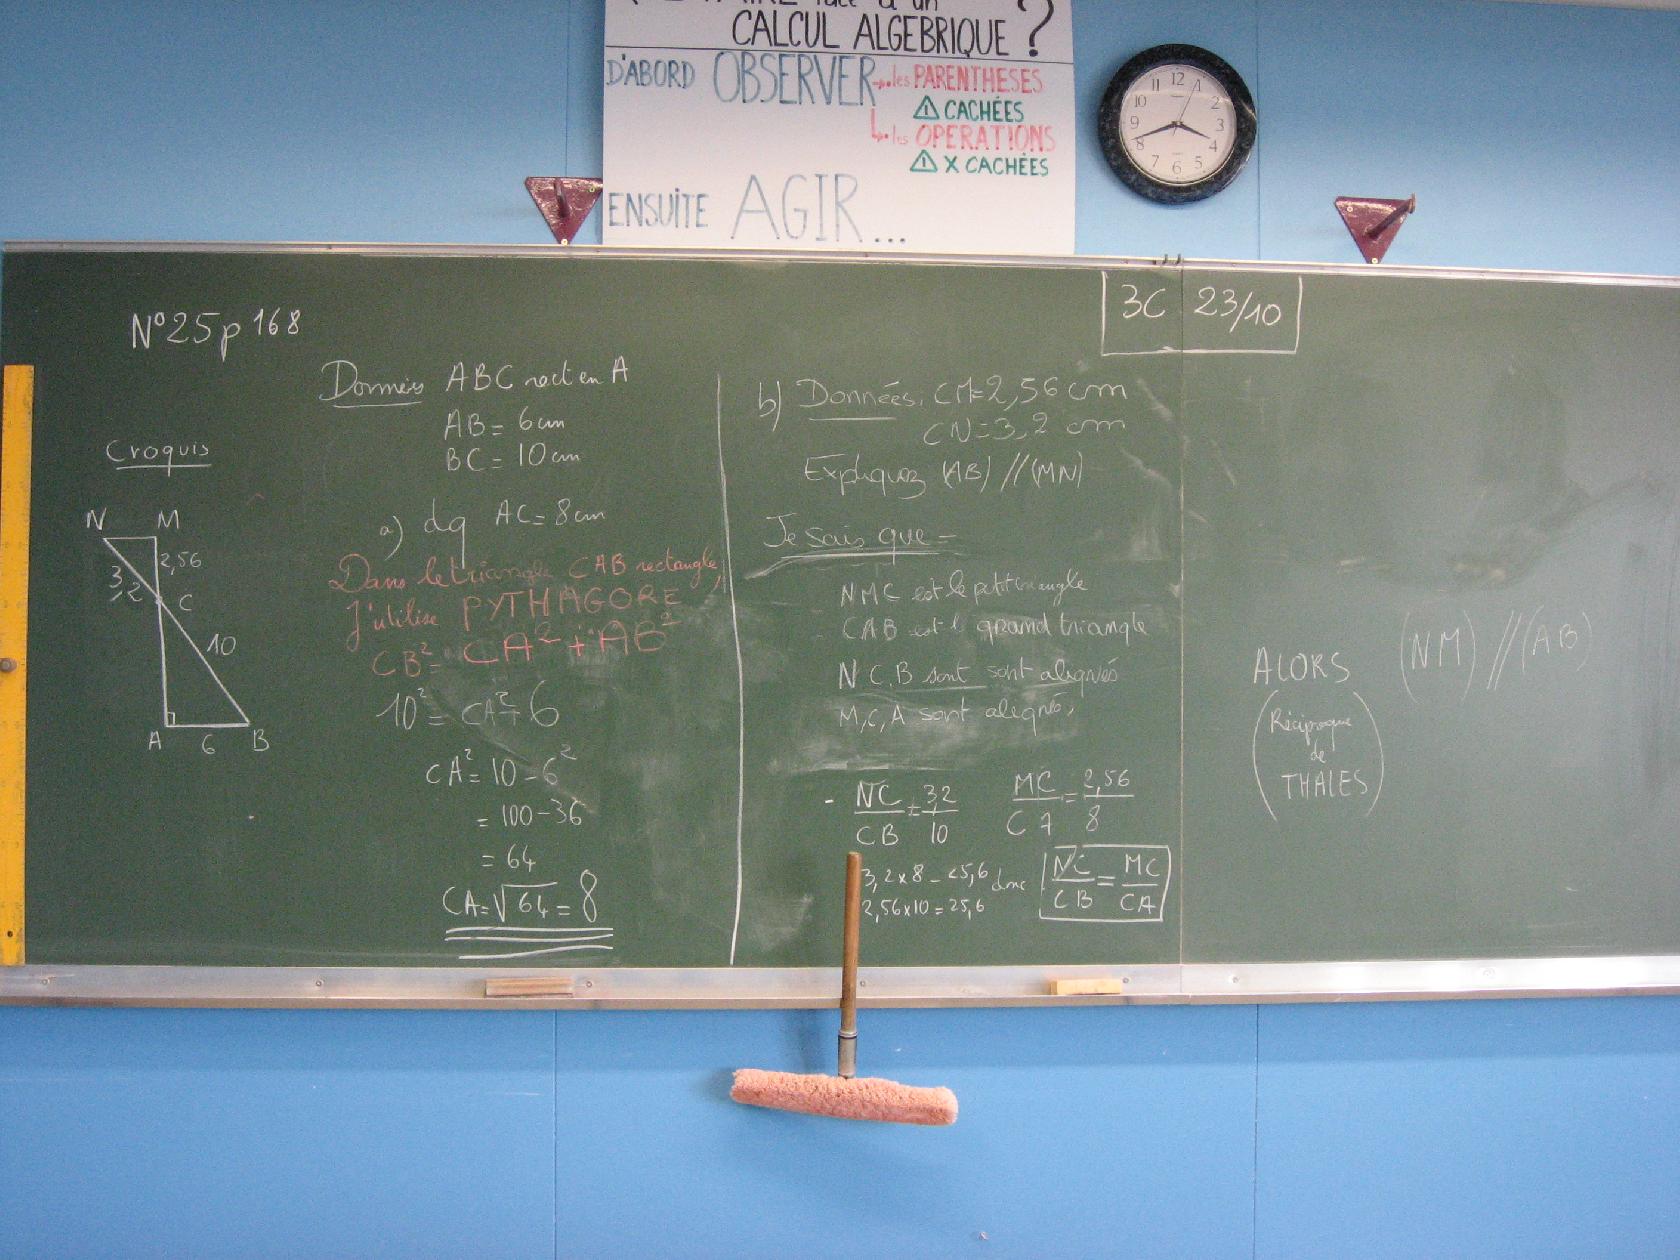 CALCUL ALGEBRIQUE ?
D'ABORD OBSERVER → les PARENTHESES
⚠ CACHÉES
↳ les OPERATIONS
⚠ X CACHÉES
ENSUITE AGIR...
12
1
2
3
4
5
6
7
8
9
10
11
3C 23/10
N° 25 p 168
Croquis
N M
2,56
3,2
C
10
A 6 B
Données ABC rect en A
AB = 6cm
BC = 10cm
a) dq AC = 8cm
Dans le triangle CAB rectangle,
J'utilise PYTHAGORE
CB² = CA² + AB²
10² = CA² + 6
CA² = 10 - 6²
= 100 - 36
= 64
CA = √64 = 8
b) Données: CM = 2,56 cm
CN = 3,2 cm
Expliquez (AB) // (MN)
Je sais que -
NMC est le petit triangle
- CAB est l grand triangle
N C, B sont sont alignés
M, C, A sont alignés,
- NC/CB = 3,2/10 MC/CA = 2,56/8
3,2 x 8 = 25,6 donc NC/CB = MC/CA
2,56 x 10 = 25,6
ALORS (NM) // (AB)
(Réciproque
de
THALES)